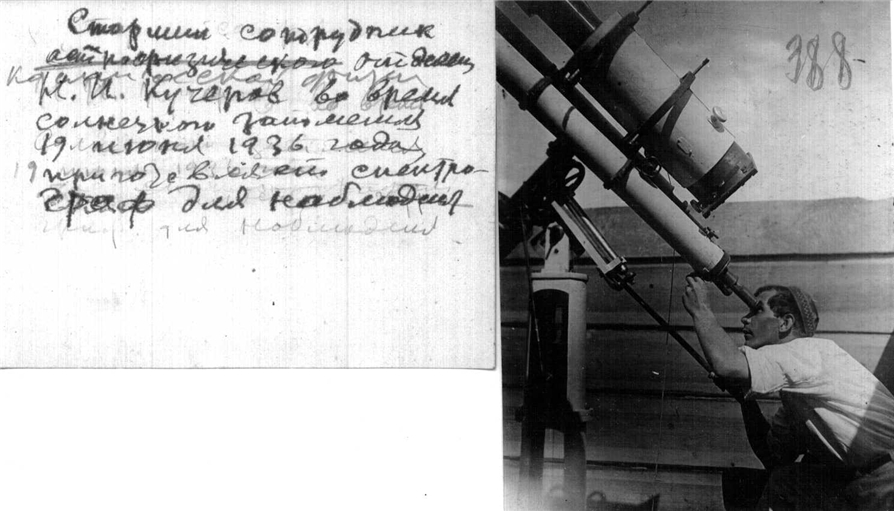 Старший сотрудник
астрофизического отдела
Н. И. Кучеров во время
солнечного затмения
19 июня 1936 года
приготовляет спектро-
граф для наблюдения
для наблюдения
388